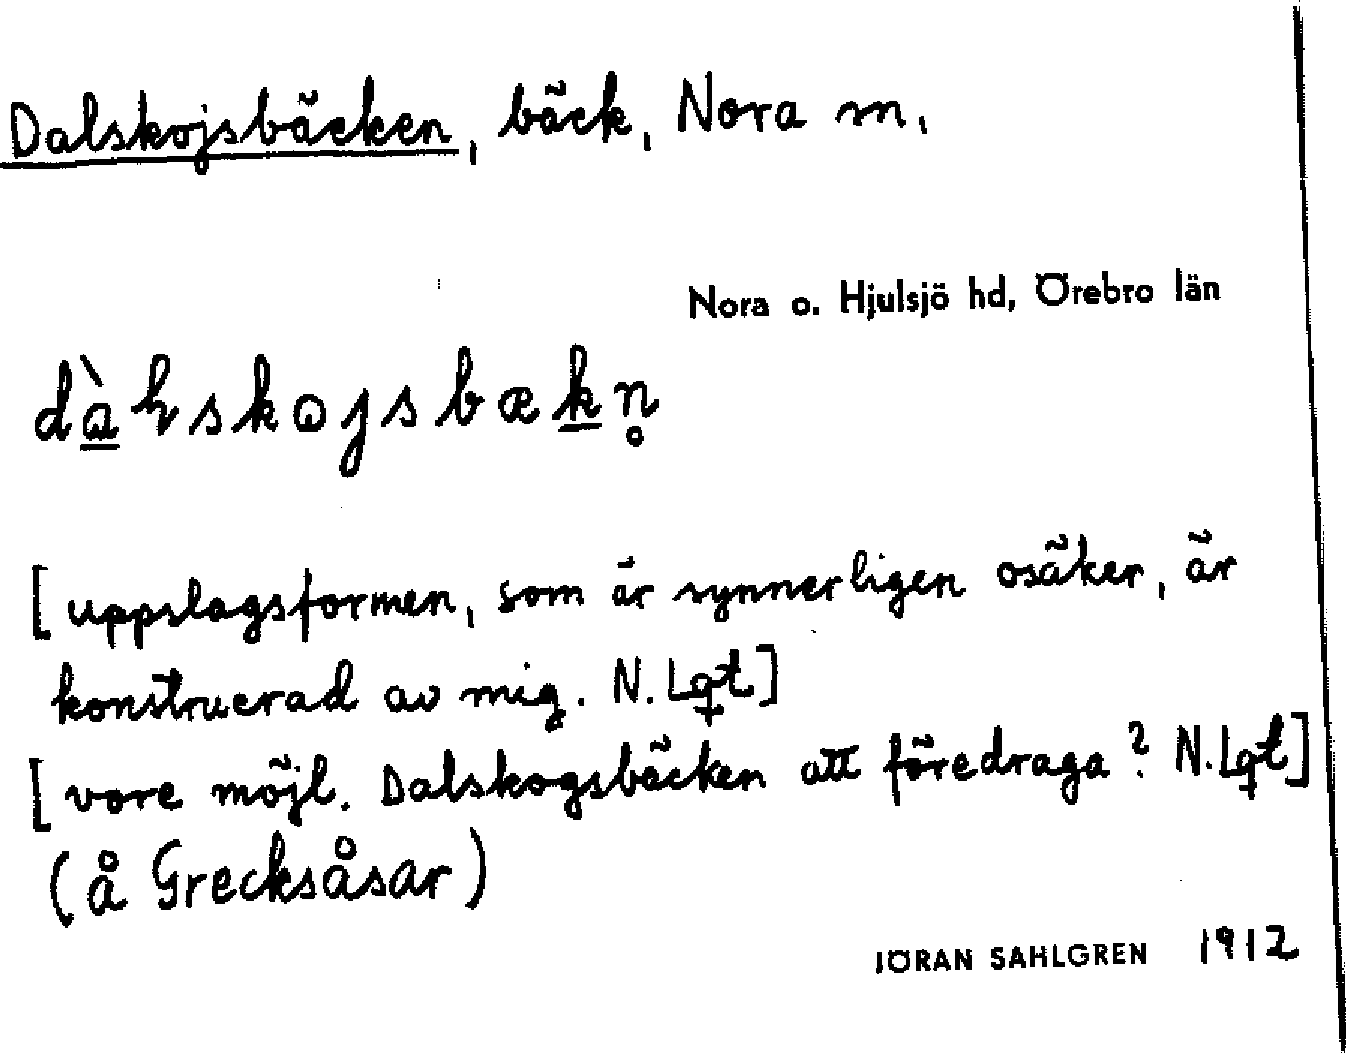 Dalskojsbäcken, bäck, Nora sn,
Nora o. Hjulsjö hd, Örebro län
[uppslagsformen, som är synnerligen osäker, är
konstruerad av mig. N. Lqt]
[vore möjl. Dalskogsbäcken att föredraga? N. Lqt]
(å Grecksåsar)
JÖRAN SAHLGREN 1912